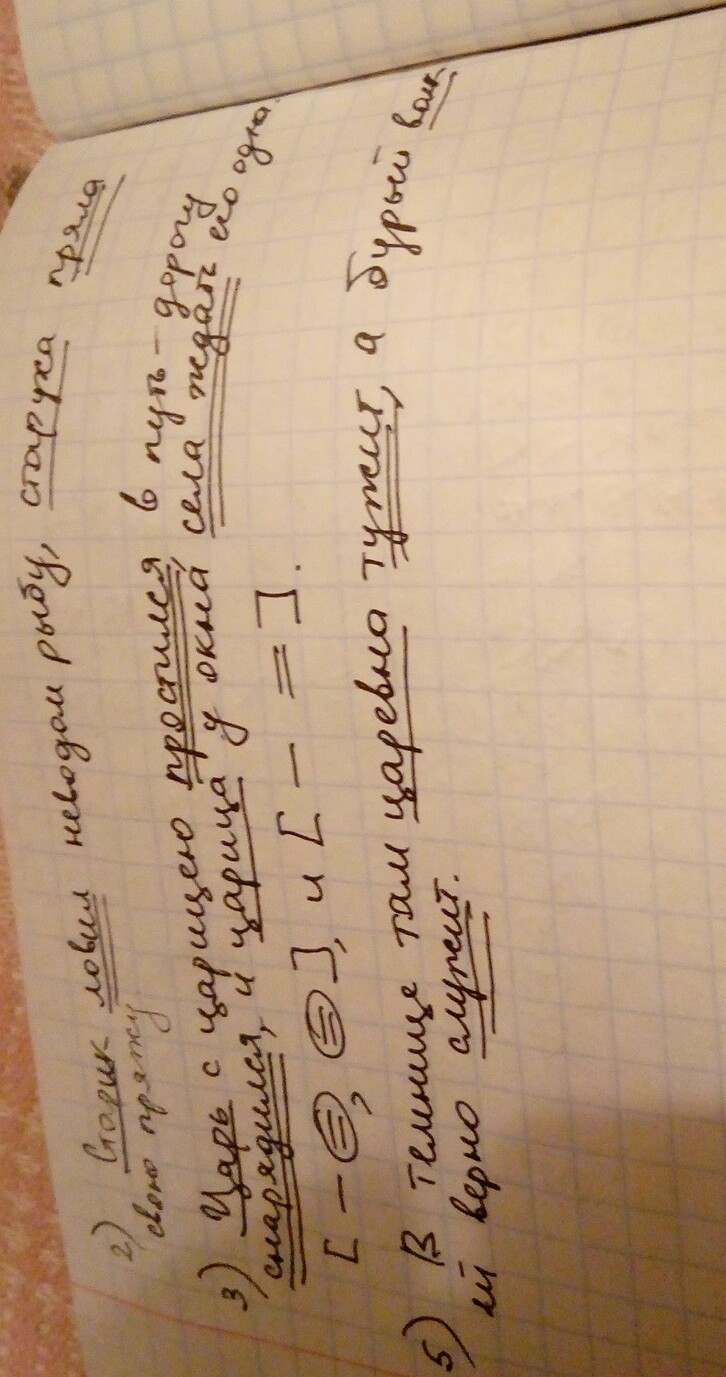 2) Старик ловил неводом рыбу, старуха пряла
свою пряжу
3) Царь с царицею простился, в путь-дорогу
снарядился, и царица у окна села ждать его одна.
[ — ⊜, ⊜ ], и [ — = ].
5) В темнице там царевна тужит, а бурый волк
ей верно служит.